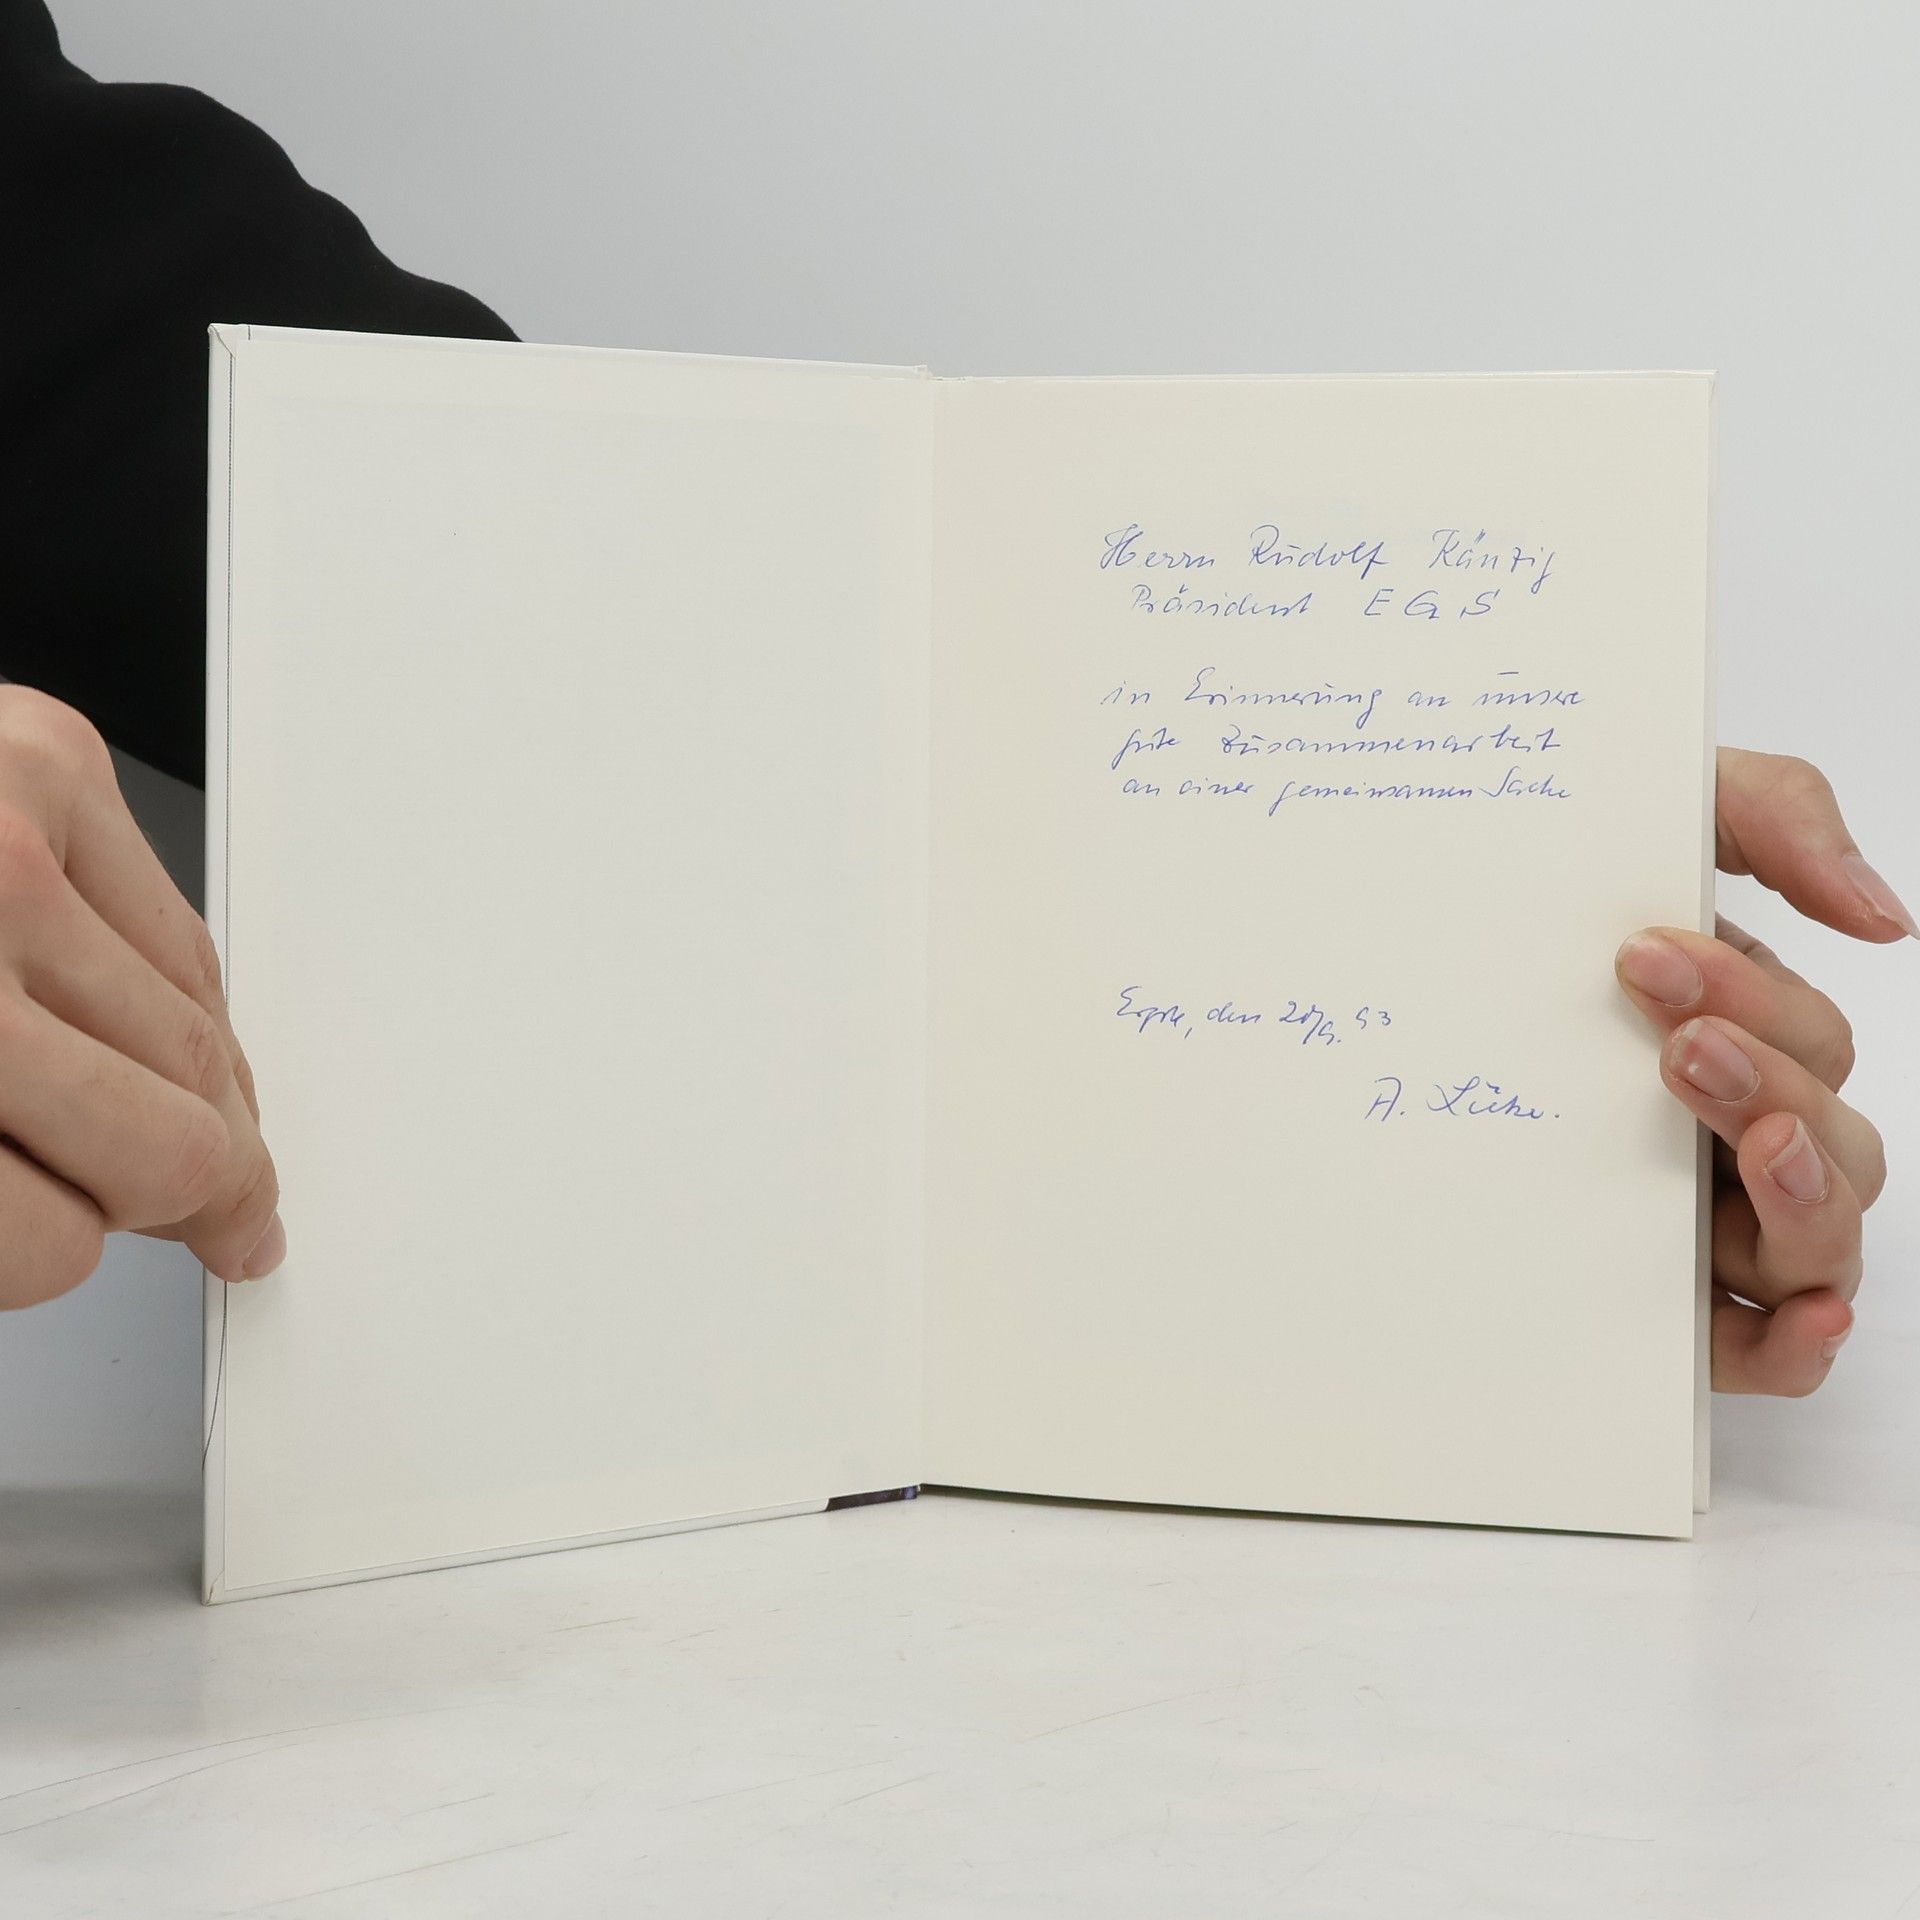 Herrn Rudolf Känzig
Präsident EGS
in Erinnerung an unsere
gute Zusammenarbeit
an einer gemeinsamen Sache
Ergste, den 93
A. Lücke.